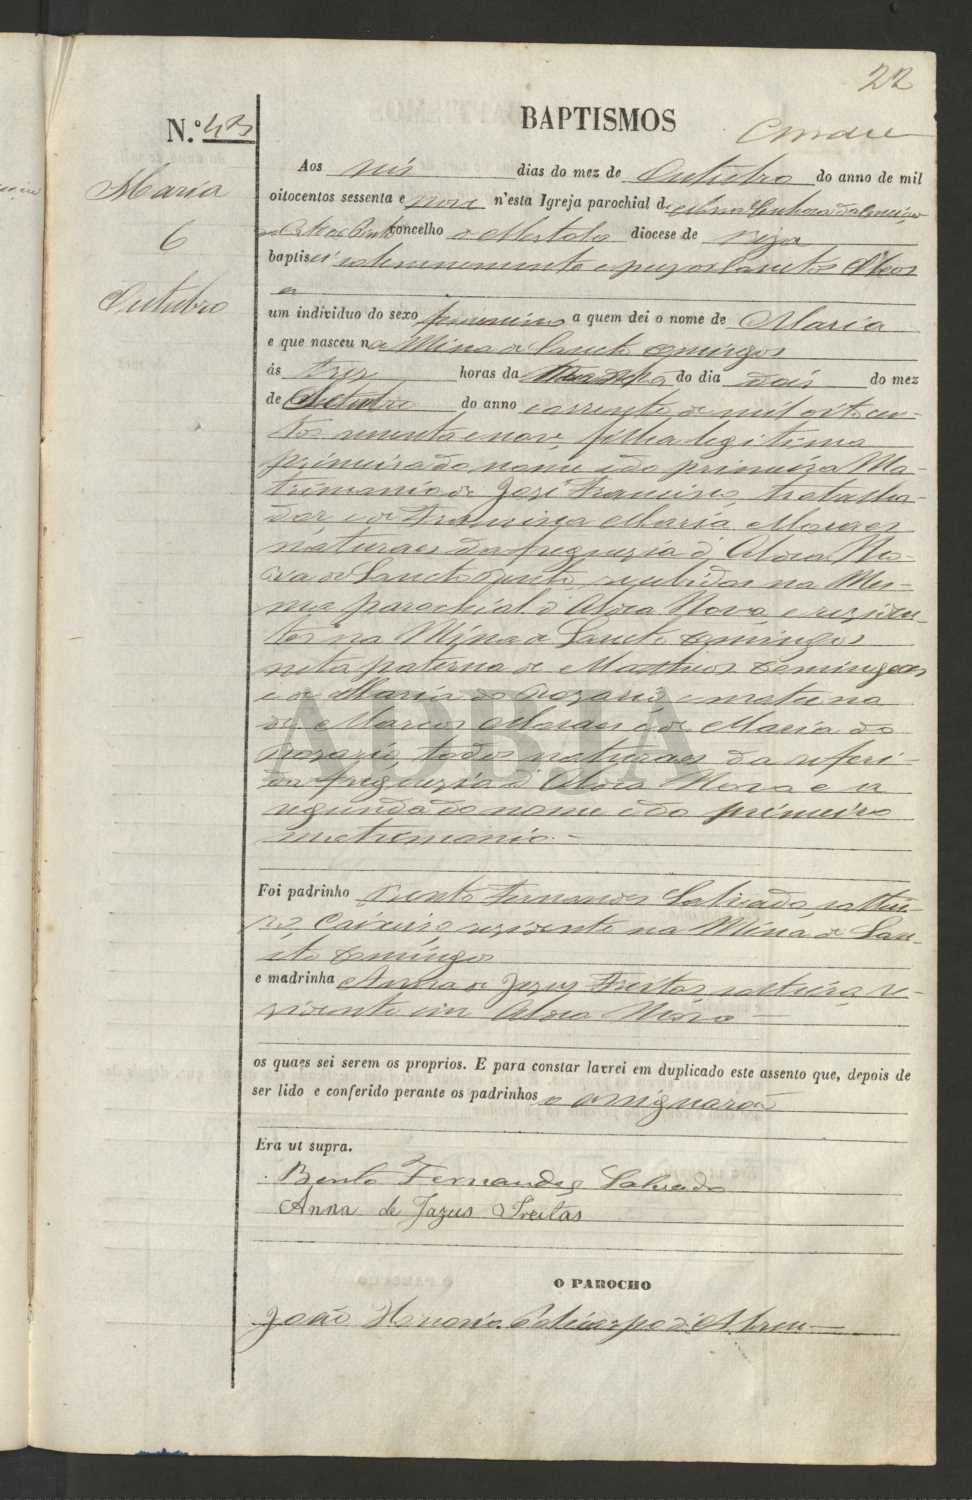 22
BAPTISMOS
N.º 43
Maria
6
Outubro
Aos seis dias do mez de Outubro do anno de mil
oitocentos sessenta e nove n'esta Igreja parochial de
concelho de Mertola diocese de Beja
baptisei solemnemente e puz os Sanctos Oleos
a
um individuo do sexo femenino a quem dei o nome de Maria
e que nasceu na Mina de Sancto Domingos
ás trez horas da do dia dois do mez
de Outubro do anno corrente de mil oitocen-
tos secenta e nove filha legitima
primeira do nome e do primeiro Ma-
trimonio de José Francisco, trabalha-
dor, e de Francisca Maria Moraes
naturaes da freguezia d' Aldea No-
va de Sancto Bento, recebidos na Mes-
ma parochial d' Aldea Nova e reziden-
tes na Mina de Sancto Domingos
neta paterna de Matheus Domingues
e de Maria do Rozario e materna
de Marcos Moraes e de Maria do
Rozario, todos naturaes da referi-
da freguezia d' Aldea Nova e a
segunda do nome e do primeiro
matremonio.
Foi padrinho Bento Fernandes Salvado, soltei-
ro, Caixeiro, rezidente na Mina de San-
cto Domingos
e madrinha Anna de Jezus Freitas solteira re-
zidente em Aldea Nova
os quaes sei serem os proprios. E para constar lavrei em duplicado este assento que, depois de
ser lido e conferido perante os padrinhos o assignarão
Era ut supra.
Bento Fernandes Salvado
Anna de Jazus Freitas
O PAROCHO
João Honorio Policarpo d'Abreu
ADBJA